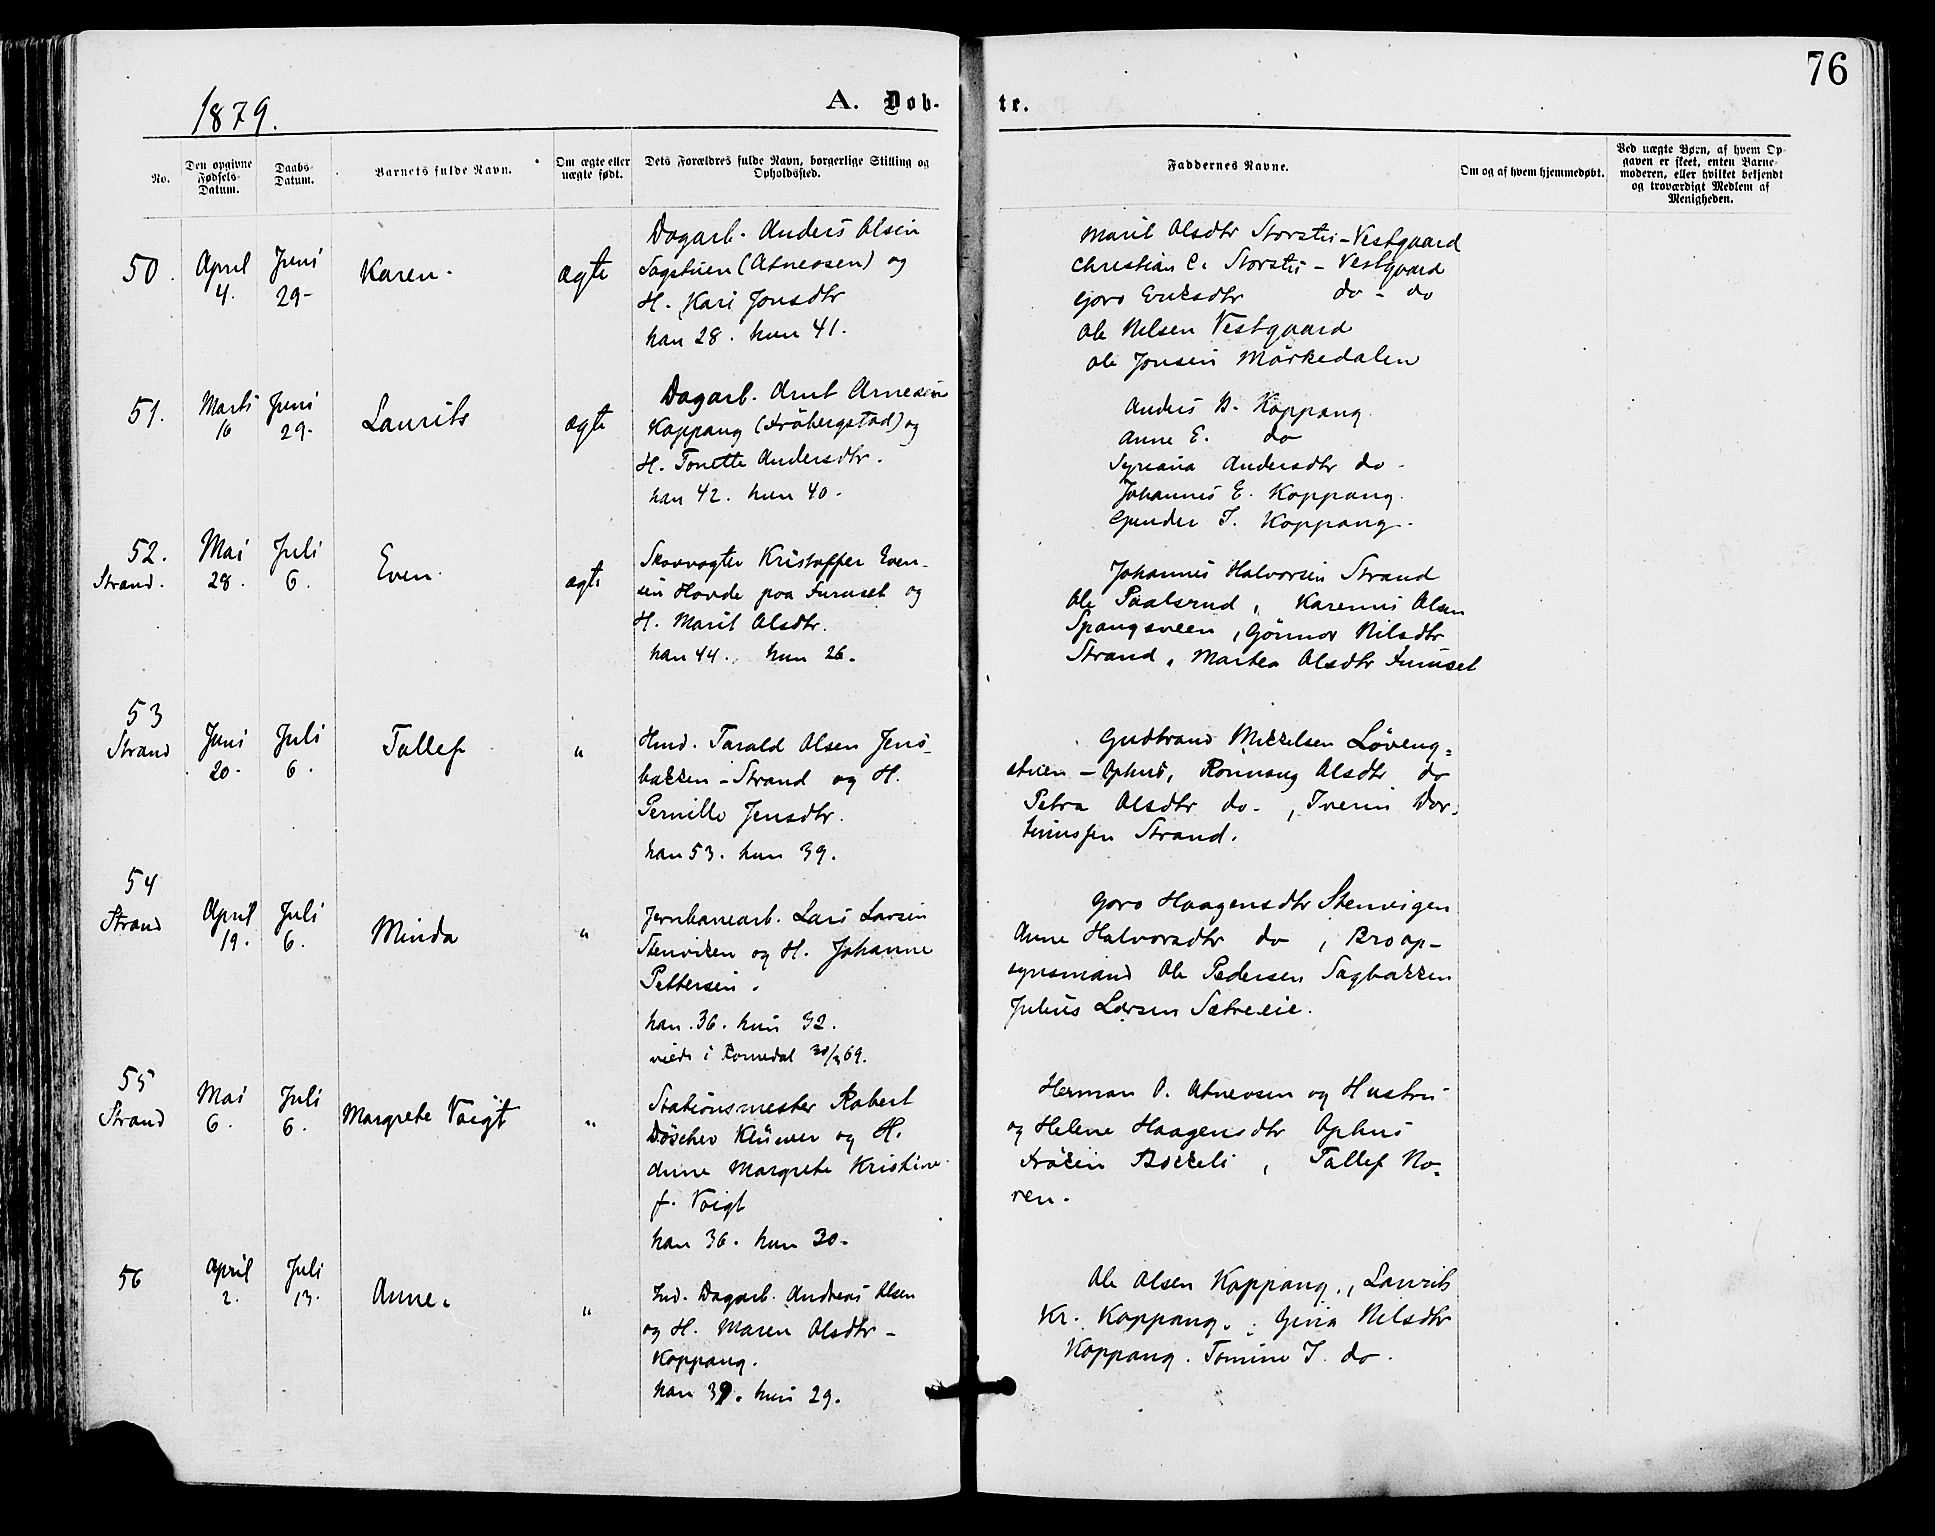 76
1879.
A. Døb-
te.
No.
Den opgivne Fødsels-Datum.
Daabs-Datum.
Barnets fulde Navn.
Om ægte eller uægte født.
Dets Forældres fulde Navn, borgerlige Stilling og Opholdssted.
Faddernes Navne.
Om og af hvem hjemmedøbt.
Ved uægte Børn, af hvem Opgaven er skeet, enten Barnemoderen, eller hvilket bekjendt og troværdigt Medlem af Menigheden.
50.
April 4.
Juni 29-
Karen.
ægte
Dagarb. Anders Olsen
Sagstuen (Atneosen) og
H. Kari Jonsdtr
han 28. hun 41.
Marit Olsdtr Storstu-Vestgaard
Christian C. Storstu - Vestgaard
Goro Eriksdtr do - do
Ole Nilsen Vestgaard
Ole Jonsen Mörkedalen
51.
Marts 16
Juni 29-
Laurits
ægte
Dagarb. Arnt Arnesen
Koppang (Fröbergstad) og
H. Tonette Andersdtr.
han 42. hun 40.
Anders B. Koppang
Anne E. do
Syriana Andersdtr do.
Johannes E. Koppang.
Gunder J. Koppang.
52.
Strand.
Mai 28.
Juli 6.
Even
ægte
Skovvogter Kristoffer Even-
sen Hovde paa Furuset og
H. Marit Olsdtr.
han 44. hun 26.
Johannes Halvorsen Strand
Ole Paalsrud, Karenus Olsen
Spangsveen, Gönnor Nilsdtr
Strand, Martea Olsdtr Furuset
53
Strand
Juni 20.
Juli 6.
Tollef
"
Hmd. Tarald Olsen Jens-
bakken-Strand og H.
Pernille Jensdtr.
han 53. hun 39.
Gudbrand Mikkelsen Løveng-
stuen - Ophus, Rønnaug Olsdtr do
Petra Olsdtr do., Iverin Mor-
tinussen Strand.
54
Strand
April 19.
Juli 6.
Minda
"
Jernbanearb. Lars Larsen
Stenviken og H. Johanne
Pettersen.
han 36. hun 32.
viede i Romedal 69.
Goro Haagensdtr Stenvigen
Anne Halvorsdtr do, Broop-
synsmand Ole Pedersen Sagbakken
Julius Larsen Sætreeie.
55
Strand
Mai 6.
Juli 6.
Margrete Voigt
"
Stationsmester Robert
Döscher Klüwer og H.
Anne Margrete Kristine
f. Voigt
han 36. hun 30.
Herman O. Atneosen og Hustru
og Helene Haagensdtr Ophus
Fröken Böckeli, Tollef No-
ren.
56
April 2.
Juli 13.
Anne.
"
Ind. Dagarb. Andreas Olsen
og H. Maren Olsdtr -
Koppang.
han 39. hun 29.
Ole Olsen Koppang., Laurits
Kr. Koppang., Gina Nilsdtr
Koppang. Tomine J. do.